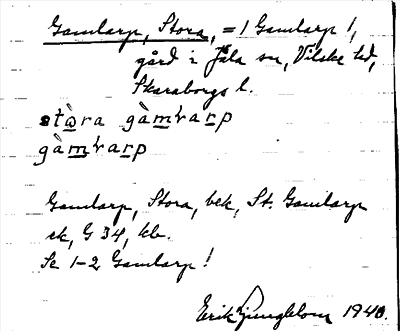 Gamlarp, Stora, = 1 Gamlarp 1,
gård i Jäla sn, Vilske hd,
Skaraborgs l.
stòra gàmḷarp
gàmḷarp
Gamlarp, Stora, bek, St. Gamlarp
ek, G 34, kb.
Se 1-2 Gamlarp!
Erik Ljungblom 1940.